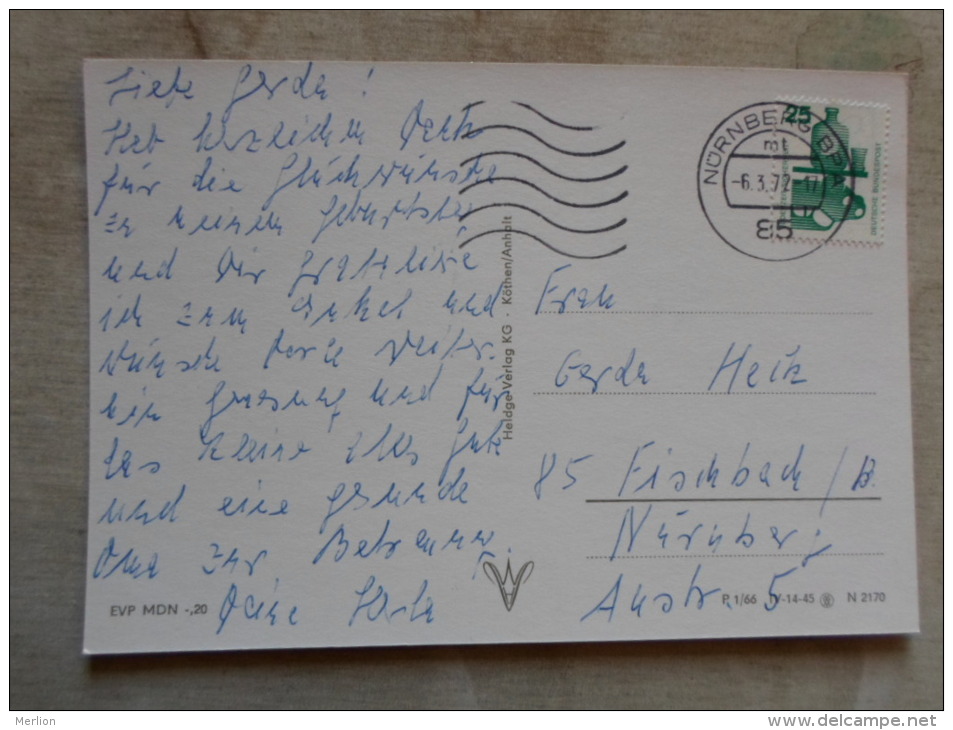 Liebe Gerda!
Hab herzlichen Dank
für die Glückwünsche
zu meinem Geburtstag
und Dir gratuliere
ich zum Enkel und
wünsche Doris weiter-
hin Genesung und für
das Kleine alles Gute
und eine gesunde
Oma zur Betreuung.
Deine
EVP MDN -,20
Heldge-Verlag KG · Köthen/Anhalt
NÜRNBERG BPA
mt
-6.3.72-17
85
25
DEUTSCHE BUNDESPOST
Frau
Gerda
85 Fischbach / B.
Nürnberg
5
P 1/66 IV-14-45 N 2170
Merlion
http://www.delcampe.net